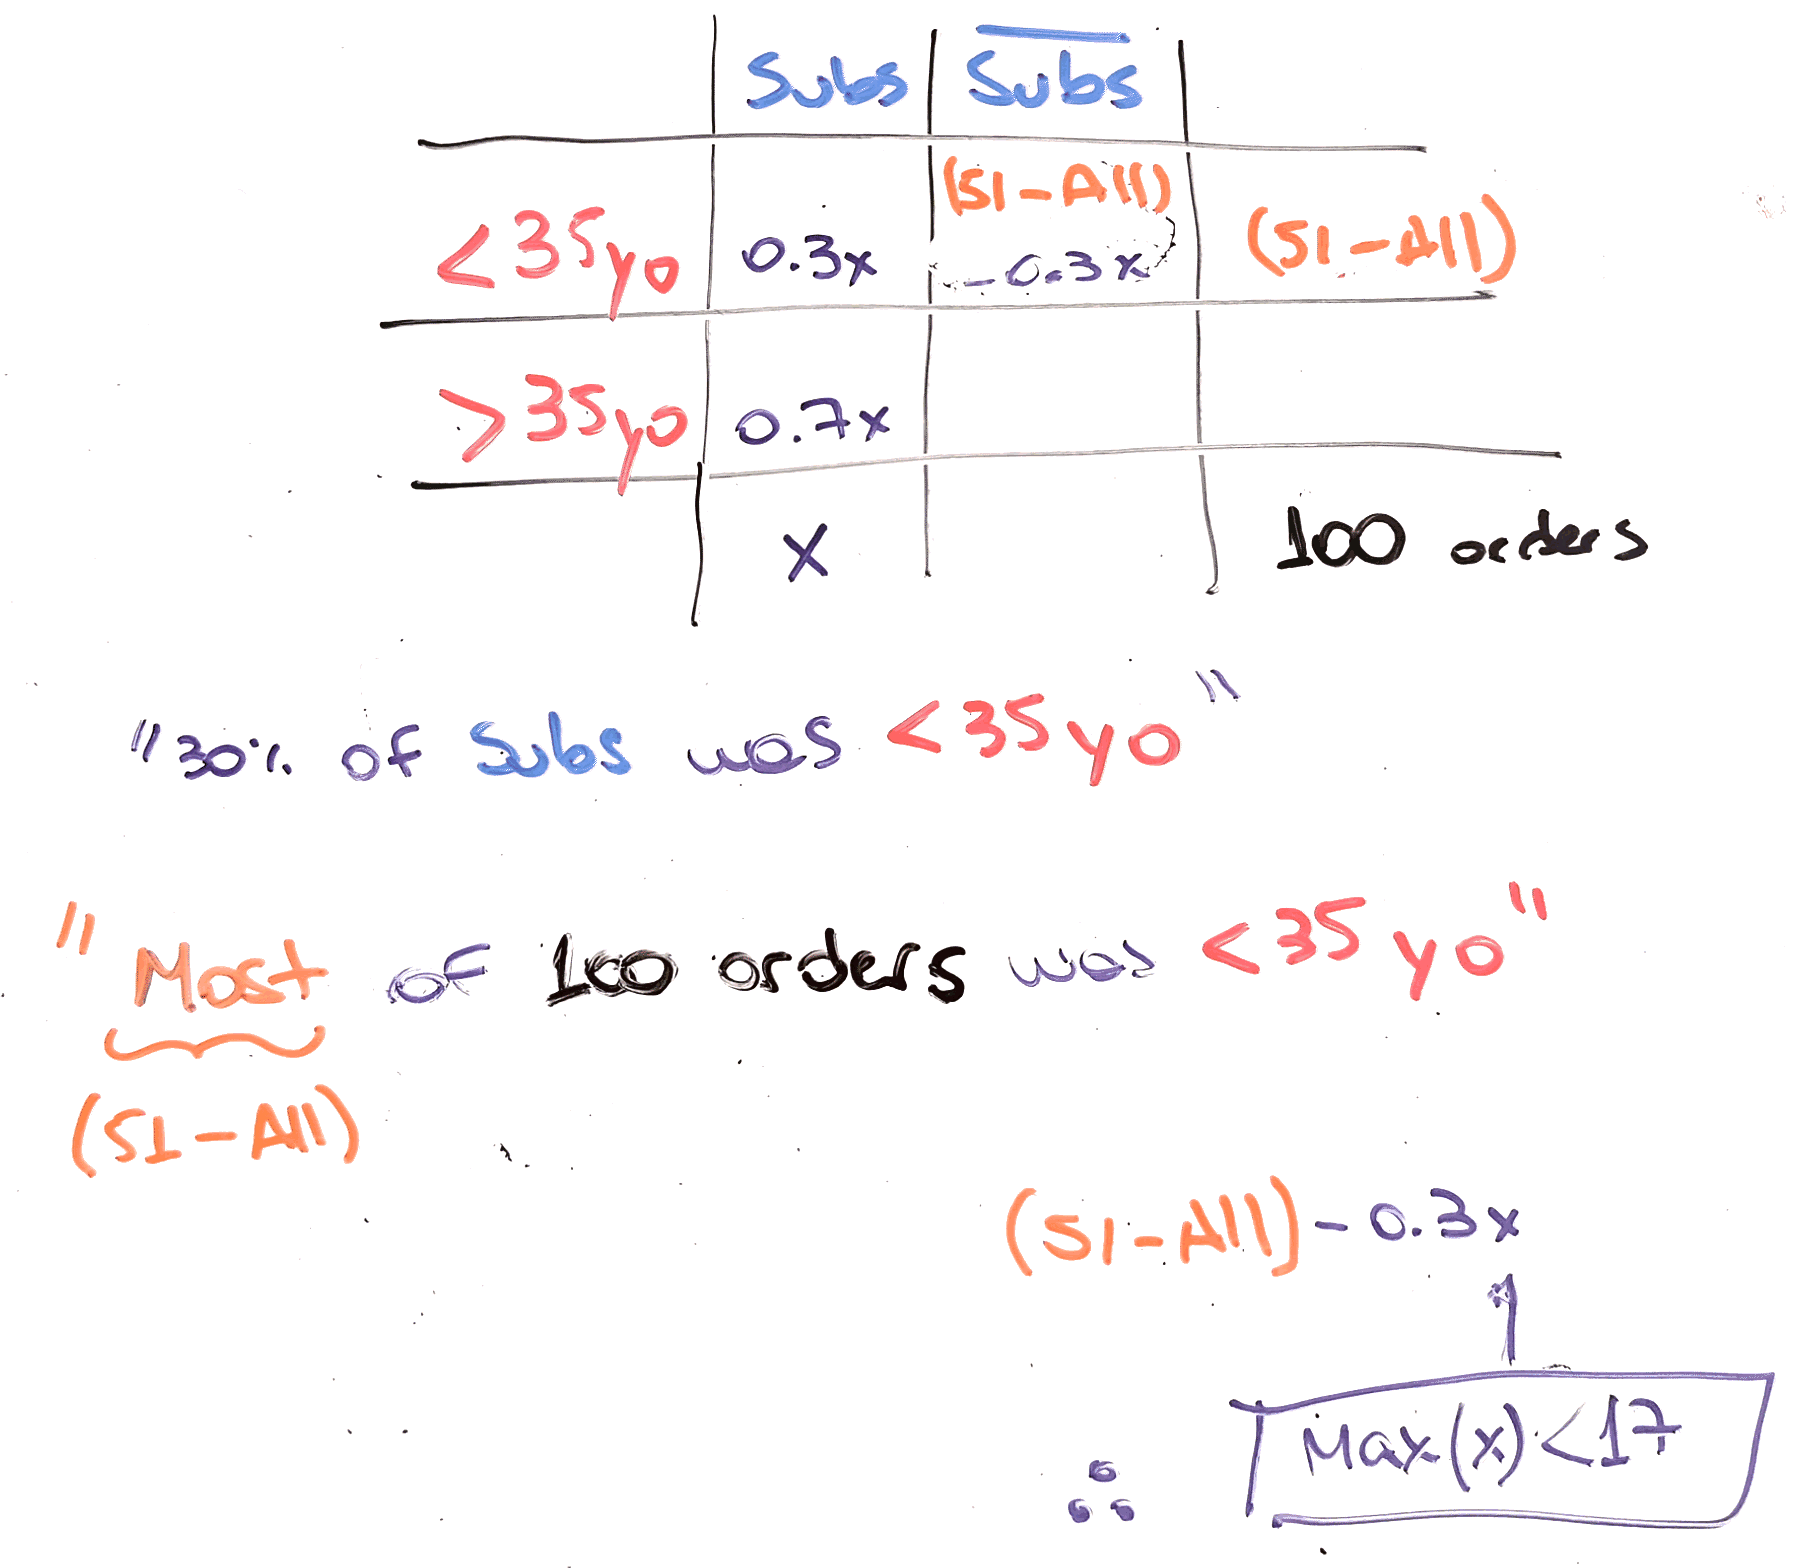 Subs Subs
(51-All)
<35yo 0.3x -0.3x (51-All)
>35yo 0.7x
x 100 orders
"30% of Subs was <35yo"
"Most of 100 orders was <35yo"
(51-All)
(51-All)-0.3x
∴ Max(x)<17